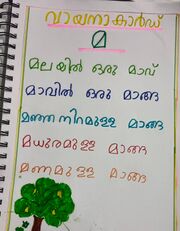 വായനാകാർഡ്
മ
മലയിൽ ഒരു മാവ്
മാവിൽ ഒരു മാങ്ങ
മഞ്ഞനിറമുള്ള മാങ്ങ
മധുരമുള്ള മാങ്ങ
മണമുള്ള മാങ്ങ